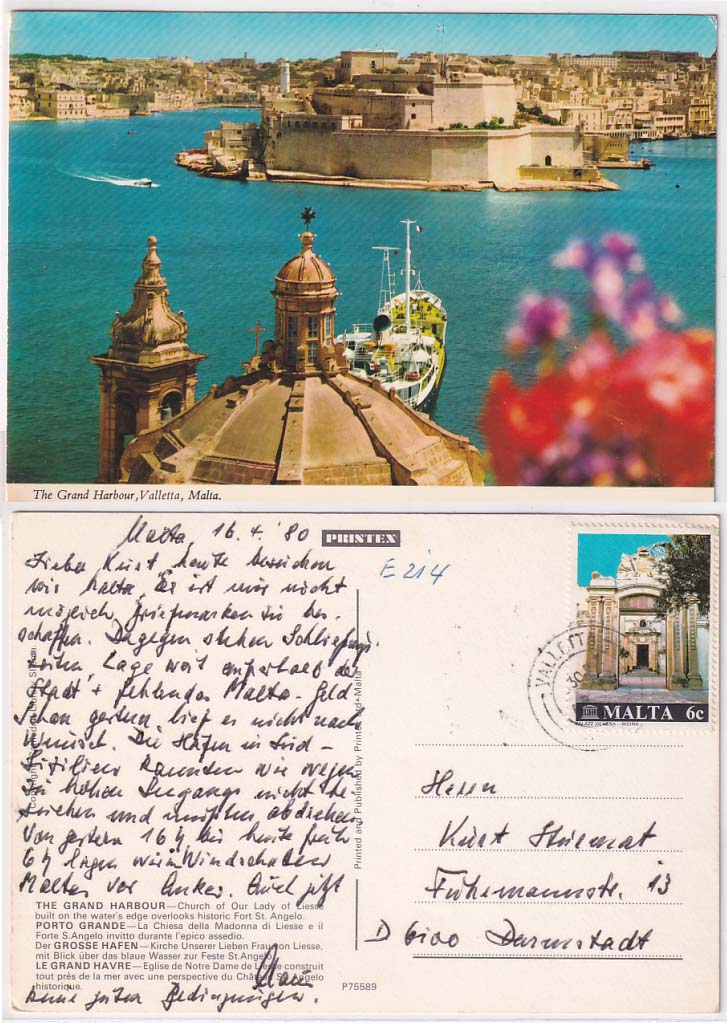 The Grand Harbour, Valletta, Malta.
Malta, 16.4.'80
Lieber Kurt, heute erreichen
wir Malta. Es ist mir nicht
möglich Briefmarken zu be-
schaffen. Dagegen stehen Schließungs-
zeiten, Lage weit außerhalb der
Stadt + fehlendes Malta-Geld
Schon gestern lief es nicht nach
Wunsch. Die Häfen in Süd-
Sizilien konnten wir wegen
zu hohen Seegangs nicht
und mußten abdrehen
Von gestern 16 h bis heute früh
6 h lagen wir im Windschatten
Maltas vor Anker. Auch jetzt
keine guten Bedingungen.
PRINTEX
E 214
VALLETTA
MALTA 6c
Printed and Published by Printex Ltd - Malta
Herrn
Kurt
13
D 6100 Darmstadt
THE GRAND HARBOUR—Church of Our Lady of Liesse
built on the water's edge overlooks historic Fort St. Angelo.
PORTO GRANDE—La Chiesa della Madonna di Liesse e il
Forte S.Angelo invitto durante l'epico assedio.
Der GROSSE HAFEN—Kirche Unserer Lieben Frau von Liesse,
mit Blick über das blaue Wasser zur Feste St.Angelo
LE GRAND HAVRE—Eglise de Notre Dame de Liesse construit
tout près de la mer avec une perspective du Château St Angelo
historique.
P75589